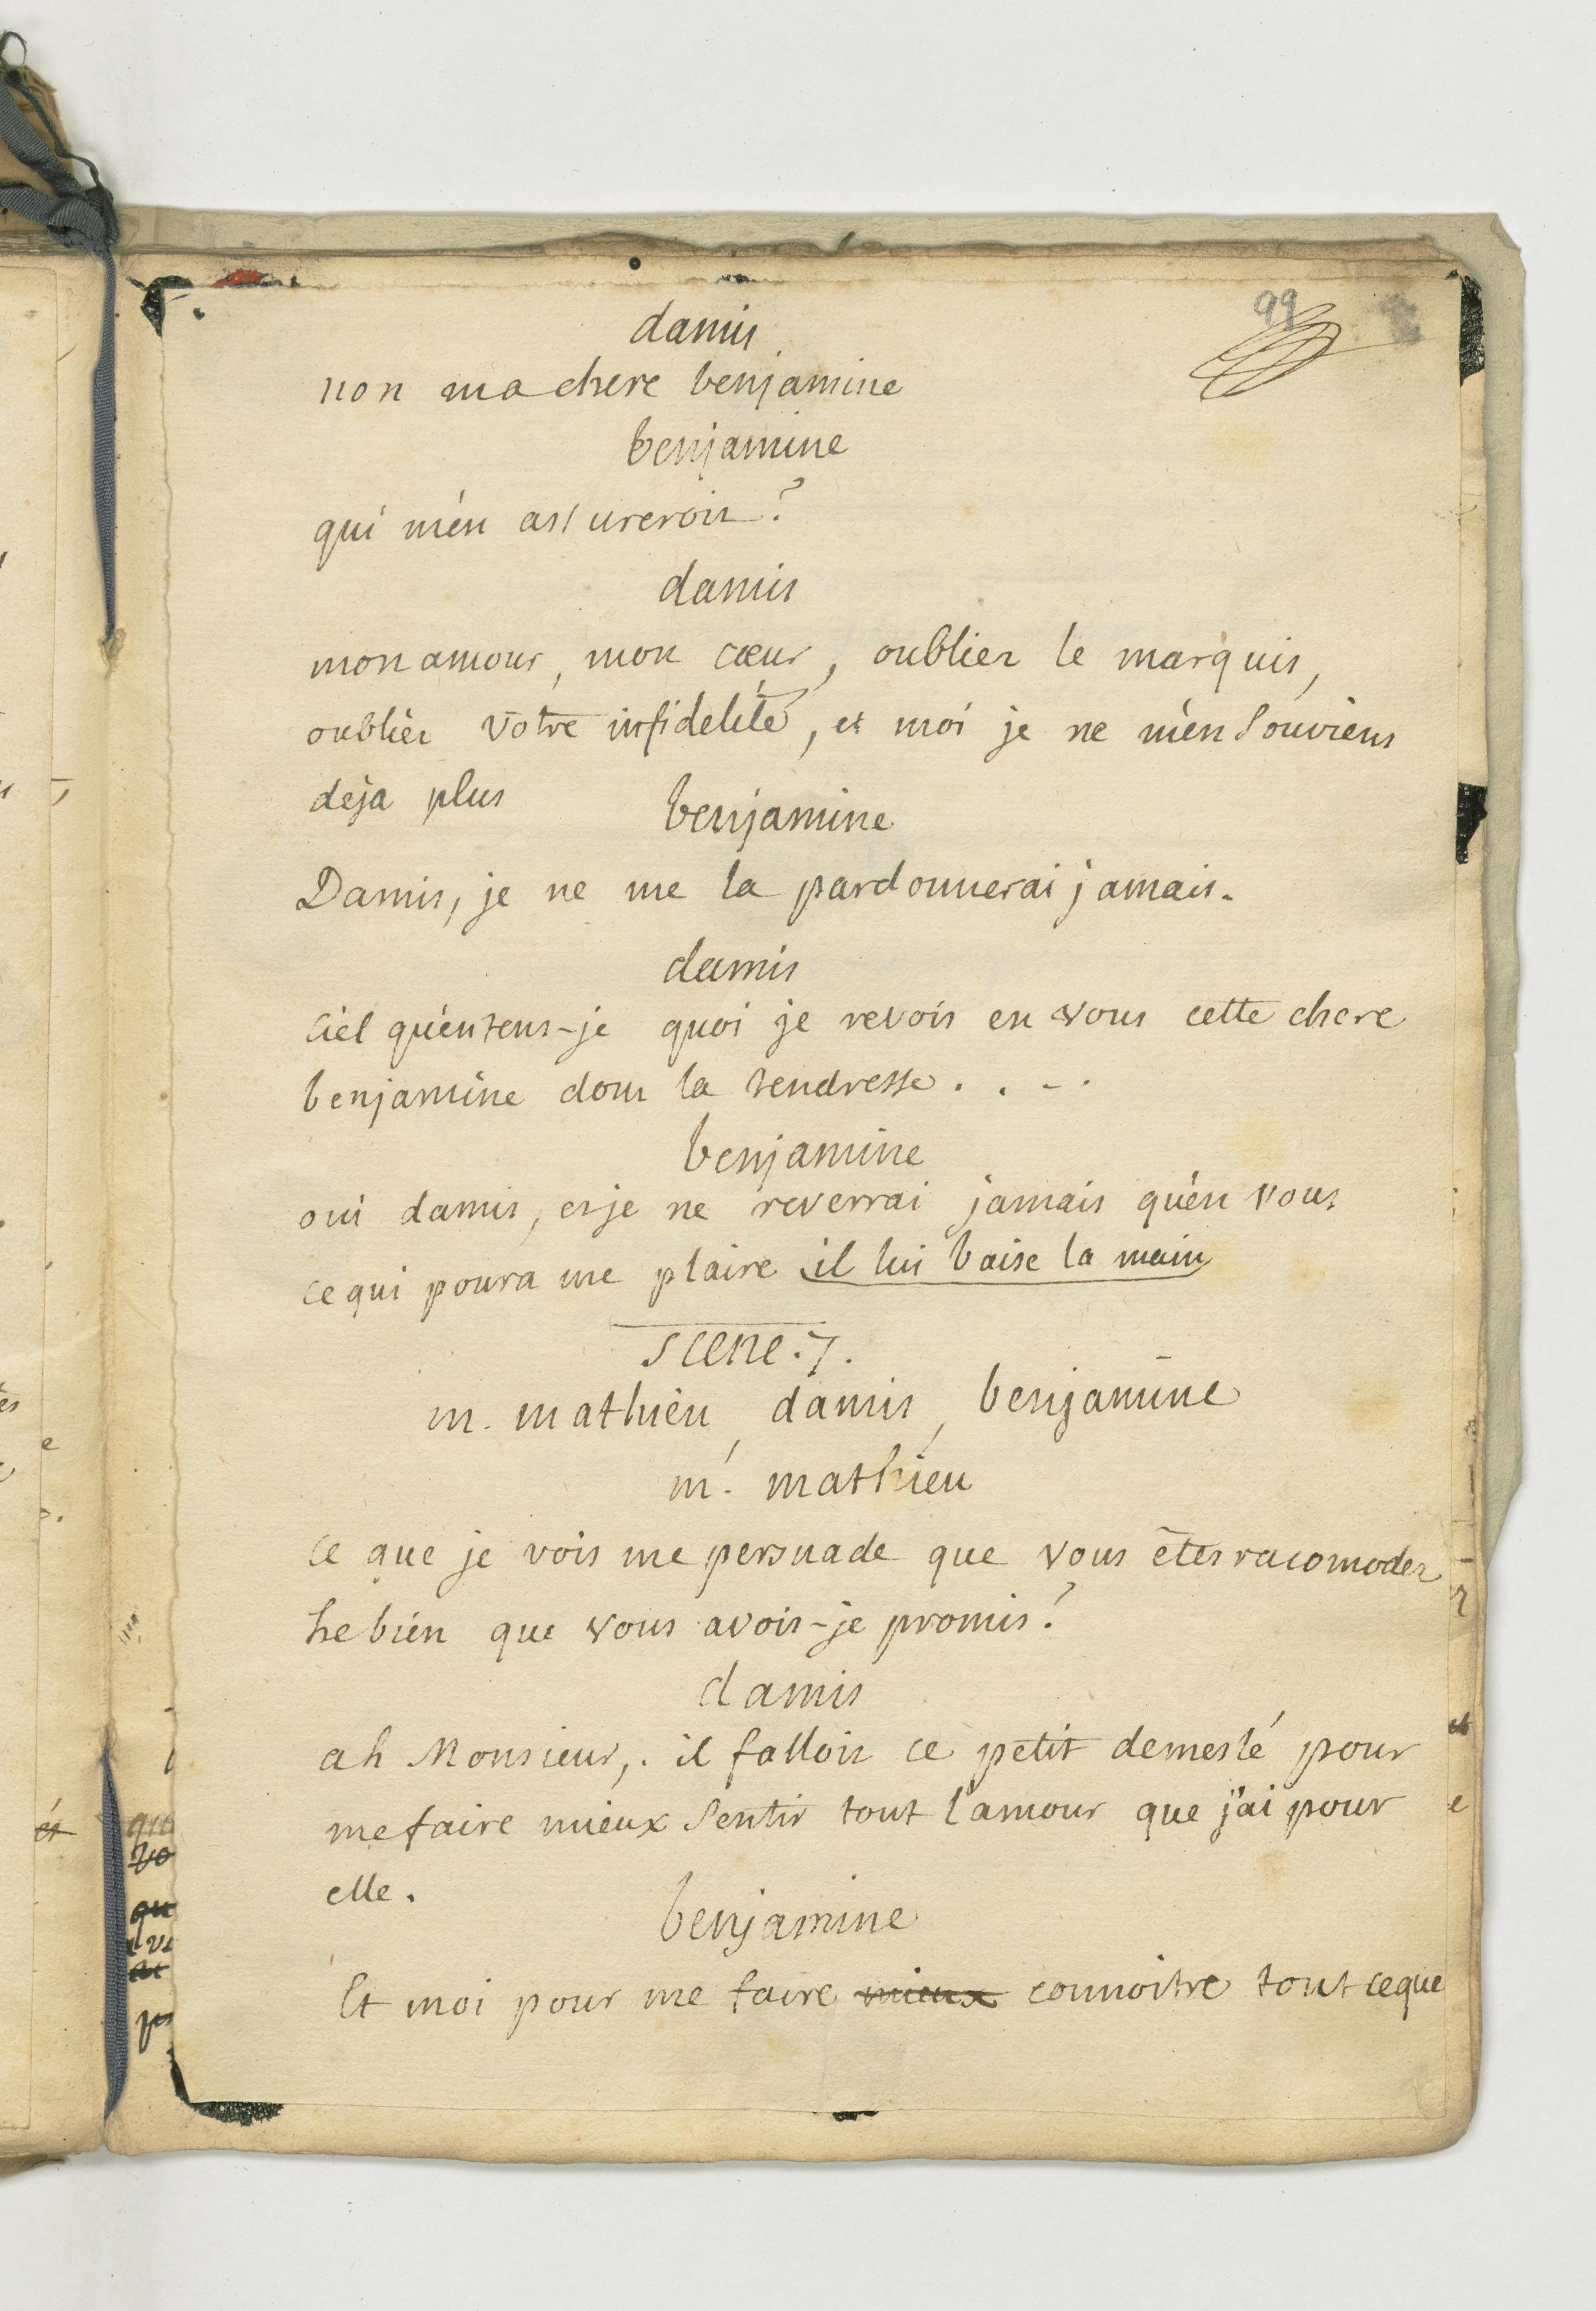 99
damis
non ma chere benjamine
benjamine
qui m'en assureroit?
damis
mon amour, mon cœur, oubliez le marquis,
oubliéz votre infidelité, et moi je ne m'en souviens
deja plus
benjamine
Damis, je ne me la pardonnerai jamais.
damis
ciel qu'entens-je quoi je revois en vous cette chere
benjamine dont la tendresse . . - .
benjamine
oui damis, et je ne reverrai jamais qu'en vous
ce qui poura me plaire il lui baise la main
scene. 7.
m. mathieu, damis, benjamine
mr. mathieu
ce que je vois me persuade que vous êtes racomodez
he bien que vous avois-je promis?
damis
ah Monsieur, . il falloit ce petit demeslé pour
me faire mieux sentir tout l'amour que j'ai pour
elle.
benjamine
Et moi pour me faire mieux connoitre tout ce que